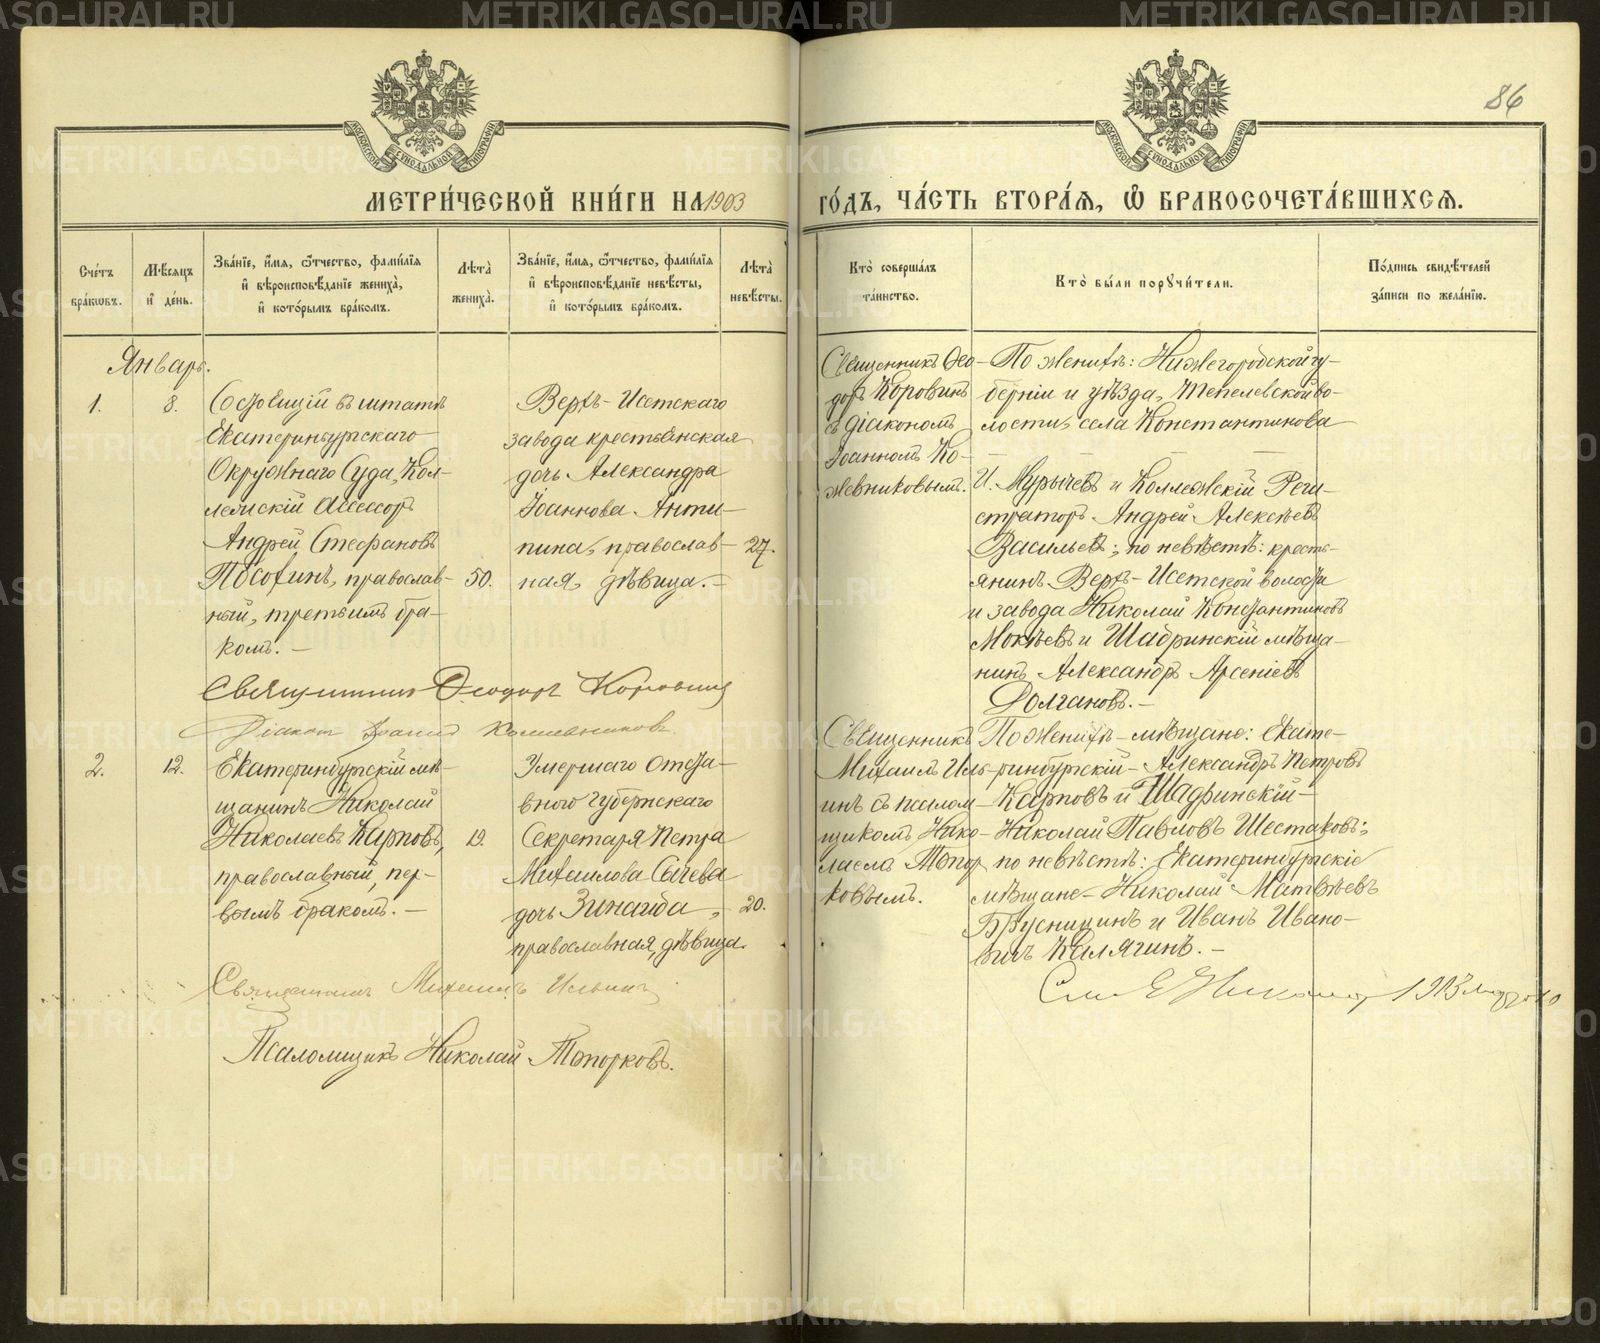 METRIKI.GASO-URAL.RU
86
МОСКОВСКОЙ СѴНОДАЛЬНОЙ ТИПОГРАФІИ
МОСКОВСКОЙ СѴНОДАЛЬНОЙ ТИПОГРАФІИ
МЕТРИ́ЧЕСКОЙ КНИ́ГИ НА 1903
ГО́ДЪ, ЧА́СТЬ ВТОРА́Ѧ, Ѽ БРАКОСОЧЕТА́ВШИХСѦ.
Сче́тъ
бра́кѡвъ.
Мѣ́сяцъ
и҆ де́нь.
Зва́нїе, и҆́мя, ѻ҆́тчество, фами́лїя
и҆ вѣроисповѣ́данїе жениха̀,
и҆ кото́рымъ бра́комъ.
Лѣта̀
жениха̀.
Зва́нїе, и҆́мя, ѻ҆́тчество, фами́лїя
и҆ вѣроисповѣ́данїе невѣ́сты,
и҆ кото́рымъ бра́комъ.
Лѣта̀
невѣ́сты.
Кто̀ соверша́лъ
та́инство.
Кто̀ бы́ли порꙋчи́тели.
По́дпись свидѣ́телей
за́писи по жела́нїю.
Январь.
1.
8.
Состоящій въ штатѣ
Екатеринбургскаго
Окружнаго Суда, Кол-
лежскій Ассесоръ
Андрей Стефановъ
православ-
ный, третьимъ бра-
комъ.-
50.
Верхъ-Исетскаго
завода крестьянская
дочь Александра
Іоаннова Анти-
пина, православ-
ная, дѣвица.-
27.
Священникъ Ѳео-
доръ Коровинъ
съ діакономъ
Іоанномъ Ко-
жевниковымъ.
По женихѣ: Нижегородской гу-
берніи и уѣзда, Тепелевской во-
лости, села Константинова
И. Мурычевъ и Коллежскій Реги-
страторъ Андрей Алексѣевъ
Васильевъ; по невѣстѣ: кресть-
янинъ Верхъ-Исетской волости
и завода Николай Константиновъ
Мокѣевъ и Шадринскій мѣща-
нинъ Александръ Арсеніевъ
Долгановъ.-
Священникъ Ѳеодоръ Коровинъ
Діаконъ Іоаннъ Кожевниковъ.
2.
12.
Екатеринбургскій мѣ-
щанинъ Николай
Николаевъ Карповъ,
православный, пер-
вымъ бракомъ.-
19.
Умершаго отста-
вного Губернскаго
Секретаря Петра
Михаилова Сычева
дочь Зинаида,
православная, дѣвица.
20.
Священникъ
Михаилъ Иль-
инъ съ псалом-
щикомъ Нико-
лаемъ Топор
ковымъ.
По женихѣ-мѣщане: Екате-
ринбургскій-Александръ Петровъ
Карповъ и Шадринскій-
Николай Павловъ Шестаковъ;
по невѣстѣ: Екатеринбургскіе
мѣщане-Николай Матвѣевъ
Брусницинъ и Иванъ Ивано-
вичъ Калягинъ.-
Священникъ Михаилъ Ильинъ
Псаломщикъ Николай Топорковъ.